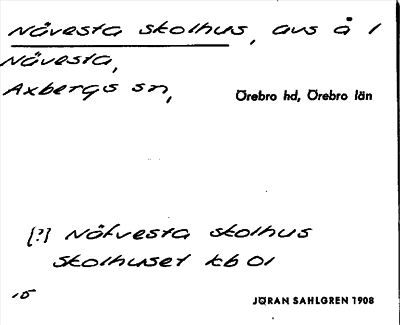 Nåvesta skolhus, avs å 1
Nåvesta,
Axbergs sn,
Örebro hd, Örebro län
[?] Nåtvesta skolhus
skolhuset kb 01
15
JÖRAN SAHLGREN 1908